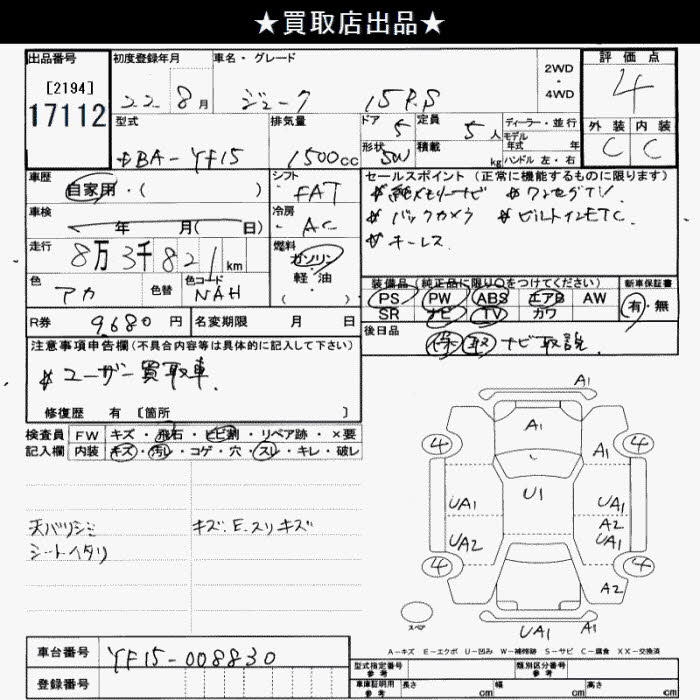 ★買取店出品★
出品番号
[2194]
17112
初度登録年月
22 年 8月
車名・グレード
ジューク 15RS
2WD
・
4WD
評価点
4
外装 内装
C C
型式
DBA-YF15
排気量
1500cc
ドア 5
定員 5人
ディーラー・並行
モデル年式 年
形状 SW
積載 kg
ハンドル 左・右
車歴
自家用・( )
シフト
FAT
セールスポイント(正常に機能するものに限ります)
# 純メモリーナビ # ワンセグTV
# バックカメラ # ビルトインETC
# キーレス
車検
年 月( 日)
冷房
AC
走行
8万3千821km
燃料
ガソリン
軽・油
( )
色
アカ
色替
色コード
NAH
装備品(純正品に限り○をつけてください)
PS PW ABS エアB AW
SR ナビ TV カワ
新車保証書
有・無
R券 9,680 円
名変期限 月 日
後日品
保 取 ナビ取説
注意事項申告欄(不具合内容等は具体的に記入して下さい)
# ユーザー買取車
修復歴 有 [箇所 ]
検査員
記入欄
FW キズ・飛石・ヒビ割・リペア跡・×要
内装 キズ・汚レ・コゲ・穴・スレ・キレ・破レ
天バリシミ
シートヘタリ
キズ、E、スリキズ
A1
A1
4 4
U1
UA1 UA1
A2
UA2 UA1
4 4
A2
スペア
UA1 A1
A-キズ E-エクボ U-凹み W-補修跡 S-サビ C-腐食 XX-交換済
車台番号
YF15-008830
登録番号
型式指定番号
参考
類別区分番号
参考
車庫証明用
参考
長さ cm
幅 cm
高さ cm